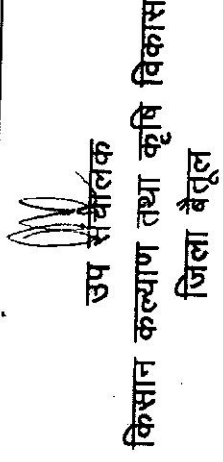 उप संचालक
किसान कल्याण तथा कृषि विकास
जिला बैतूल